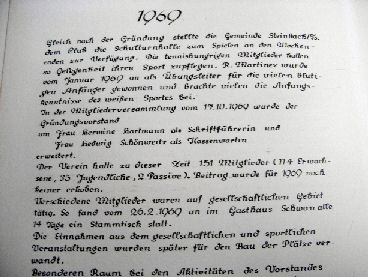 1969
Gleich nach der Gründung stellte die Gemeinde Steinbach/Ts.
dem Club die Schulturnhalle zum Spielen an den Wochen-
enden zur Verfügung. Die tennishungrigen Mitglieder hatten
so Gelegenheit ihren Sport zu pflegen. R. Martinez wurde
vom Januar 1969 an als Übungsleiter für die vielen bluti-
gen Anfänger gewonnen und brachte vielen die Anfangs-
kenntnisse des weißen Sportes bei.
In der Mitgliederversammlung vom 17.10.1969 wurde der
Gründungsvorstand
um Frau Hermine Hartmann als Schriftführerin und
Frau Hedwig Schönwetter als Kassenwartin
erweitert.
Der Verein hatte zu dieser Zeit 151 Mitglieder (114 Erwach-
sene, 35 Jugendliche, 2 Passive). Beitrag wurde für 1969 noch
keiner erhoben.
Verschiedene Mitglieder waren auf gesellschaftlichen Gebiet
tätig. So fand vom 26.2.1969 an im Gasthaus Schwan alle
14 Tage ein Stammtisch statt.
Die Einnahmen aus dem gesellschaftlichen und sportlichen
Veranstaltungen wurden später für den Bau der Plätze ver
wandt.
Besonderen Raum bei den Aktivitäten des Vorstandes